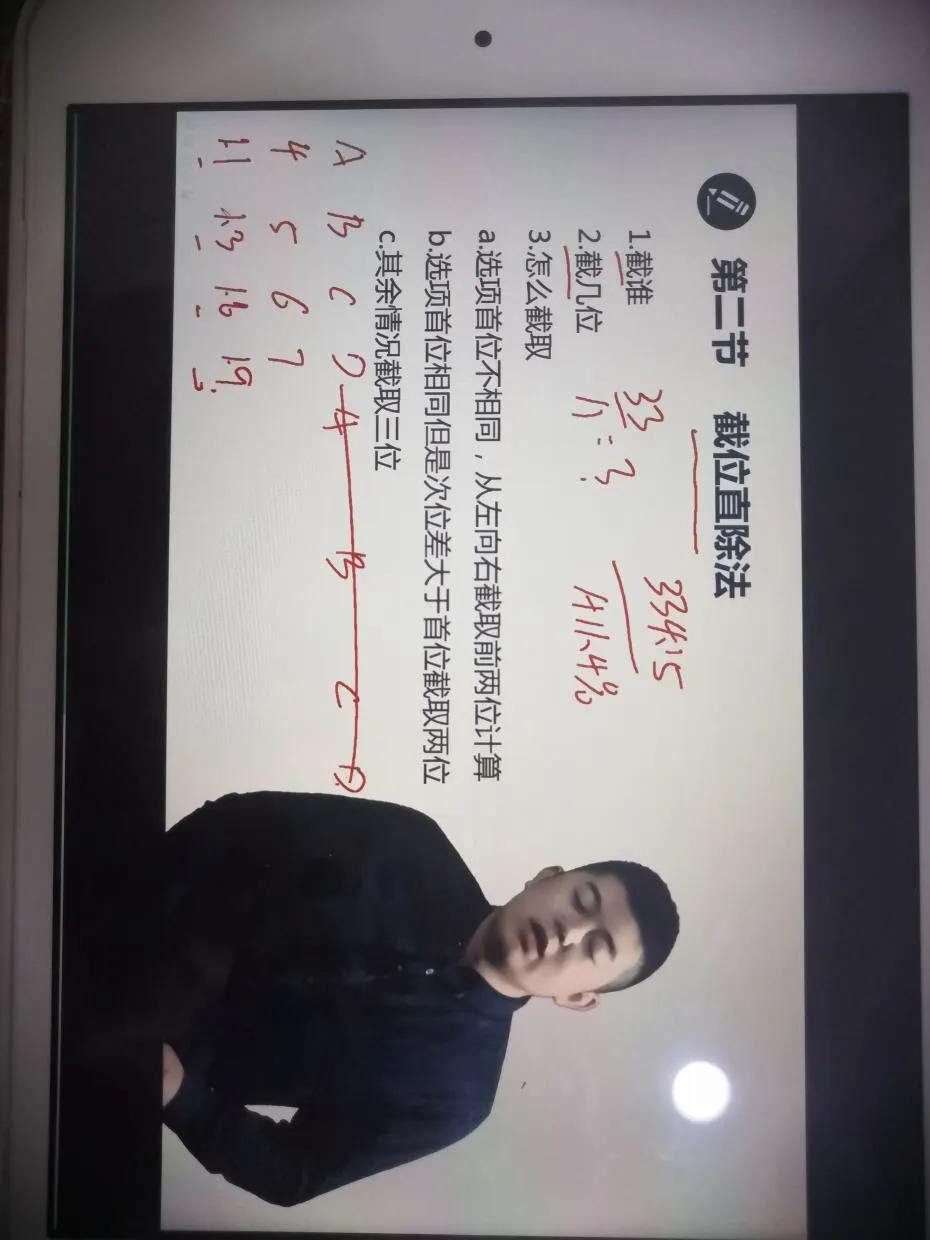 第二节 截位直除法
1.截谁
2.截几位
3.怎么截取
a.选项首位不相同，从左向右截取前两位计算
b.选项首位相同但是次位差大于首位截取两位
c.其余情况截取三位
33
11 = ?
334.15
A B C D
4 5 6 7
1.1 1.3 1.6 1.9
A B C D